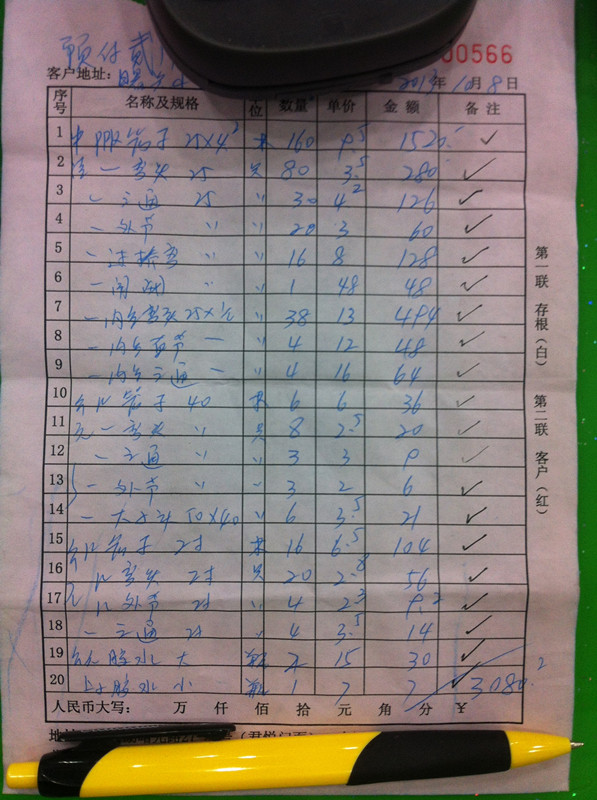 预付贰 00566
客户地址: 2013年10月8日
序号 名称及规格 位 数量 单价 金额 备注
1 中 PPR管子 25×4.2 米 160 9.5 1520.- ✓
2 佳 一弯头 25 只 80 3.5 280 ✓
3 一三通 25 〃 30 4.2 126 ✓
4 一外节 〃 〃 20 3 60 ✓
5 一过桥弯 〃 〃 16 8 128 ✓
6 一闸阀 〃 〃 1 48 48 ✓
7 一内牙弯头25×½ 〃 38 13 494 ✓
8 一内牙直节 一 〃 4 12 48 ✓
9 一内牙三通 一 〃 4 16 64 ✓
10 管子 40 米 6 6 36 ✓
11 一弯头 〃 只 8 2.5 20 ✓
12 一三通 〃 〃 3 3 9 ✓
13 一外节 〃 〃 3 2 6 ✓
14 一大小头 50×40 〃 6 3.5 21 ✓
15 管子 2寸 米 16 6.5 104 ✓
16 弯头 2寸 只 20 2.8 56 ✓
17 外节 2寸 〃 4 2.3 9.2 ✓
18 一三通 2寸 〃 4 3.5 14 ✓
19 胶水 大 瓶 2 15 30 ✓
20 胶水 小 瓶 1 7 7 ✓ 3080.2
人民币大写: 万 仟 佰 拾 元 角 分 ¥
第一联 存根(白)
第二联 客户(红)